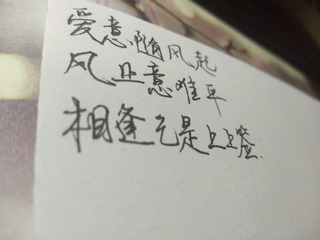 爱意随风起
风止意难平
相逢乞是上上签